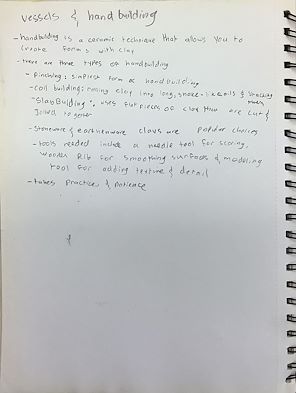 vessels & handbuilding
- handbuilding is a ceramic technique that allows you to
create forms with clay
- there are three types of handbuilding
- Pinching: simplest form of handbuilding
- coil building; rolling clay into long, snake-like coils & stacking them
- "Slab Building": uses flat pieces of clay that are cut &
joined together
- Stoneware & earthenware clays are popular choices
- tools needed include a needle tool for scoring,
wooden rib for smoothing surfaces & modeling
tool for adding texture & detail
- takes practice & patience